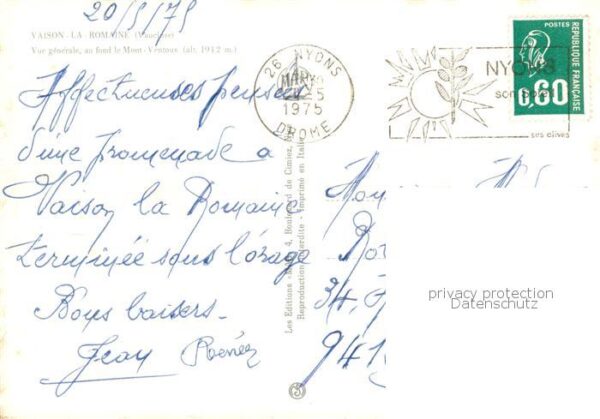 20/5/75
VAISON-LA-ROMAINE (Vaucluse)
Vue générale, au fond le Mont-Ventoux (alt. 1912 m.)
Affectueuses pensées
d'une promenade a
Vaison la Romaine
terminée sous l'orage
Bons baisers.
Jean
Les Editions 4, Boulevard de Cimiez,
Reproduction interdite - Imprimé en Italie
26 NYONS
1975
DROME
NYONS
son
ses olives
POSTES
REPUBLIQUE FRANÇAISE
0,60
34,
941
privacy protection
Datenschutz